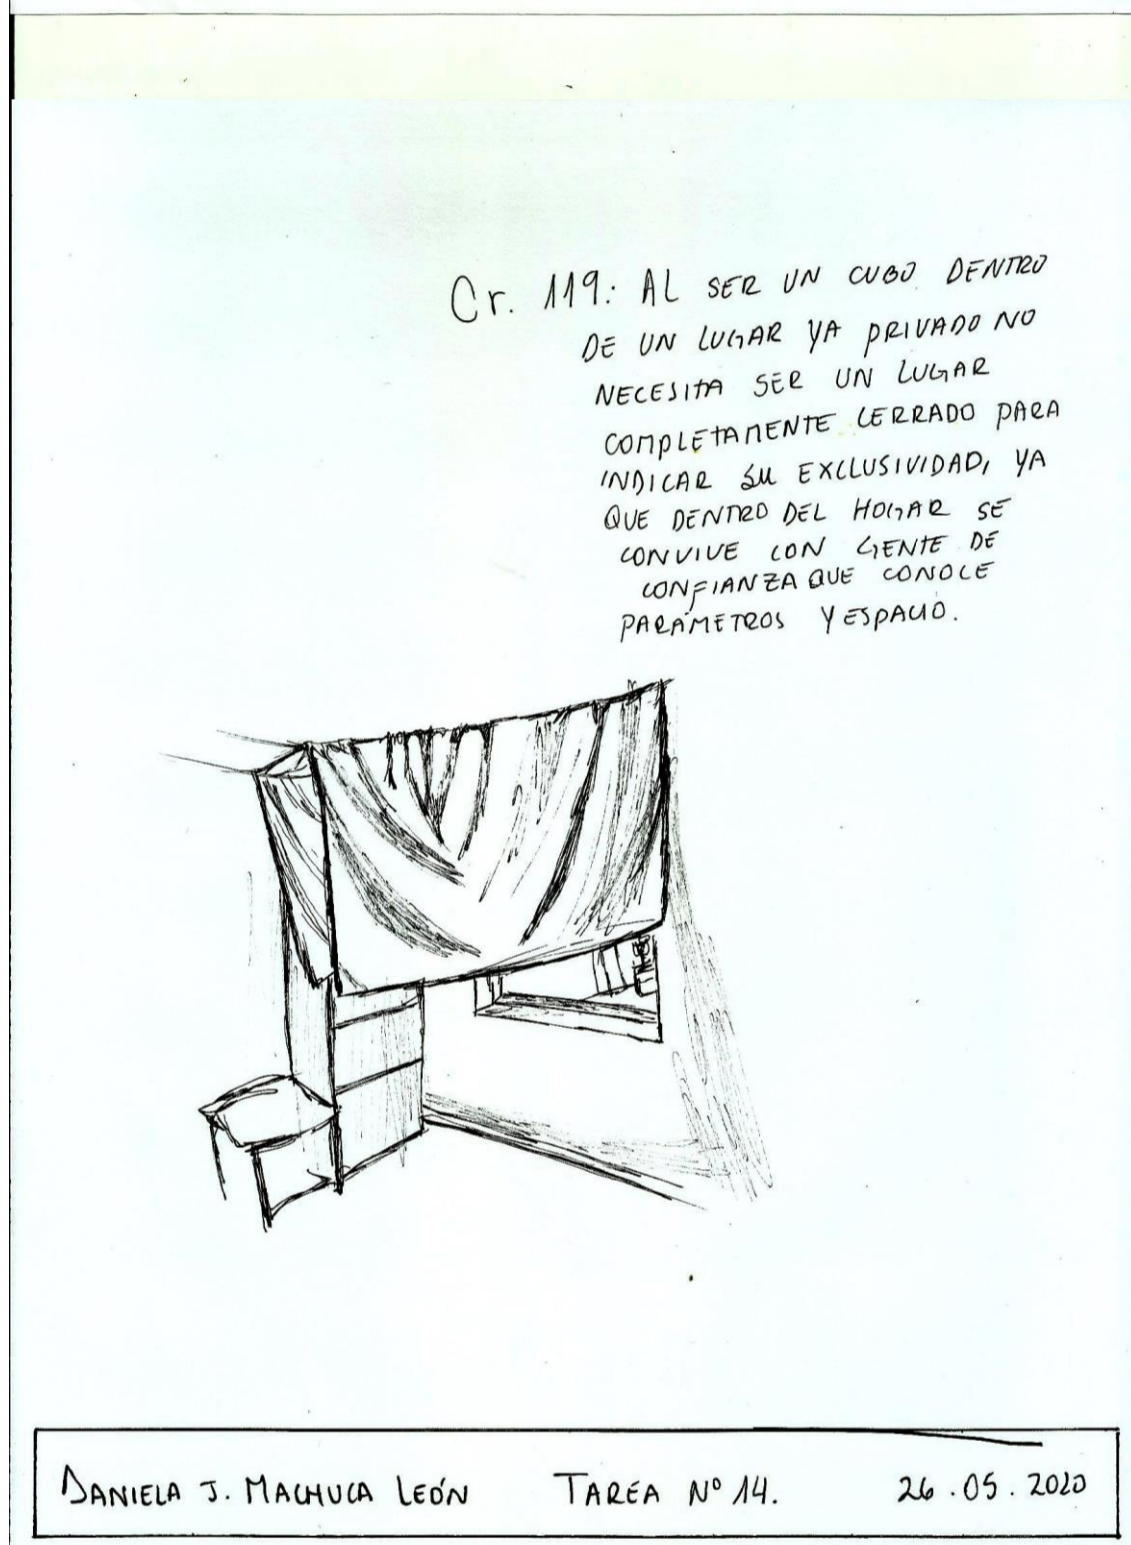 Cr. 119: AL SER UN CUBO DENTRO
DE UN LUGAR YA PRIVADO NO
NECESITA SER UN LUGAR
COMPLETAMENTE CERRADO PARA
INDICAR SU EXCLUSIVIDAD, YA
QUE DENTRO DEL HOGAR SE
CONVIVE CON GENTE DE
CONFIANZA QUE CONOCE
PARÁMETROS Y ESPACIO.
DANIELA J. MACHUCA LEÓN TAREA Nº 14. 26.05.2020